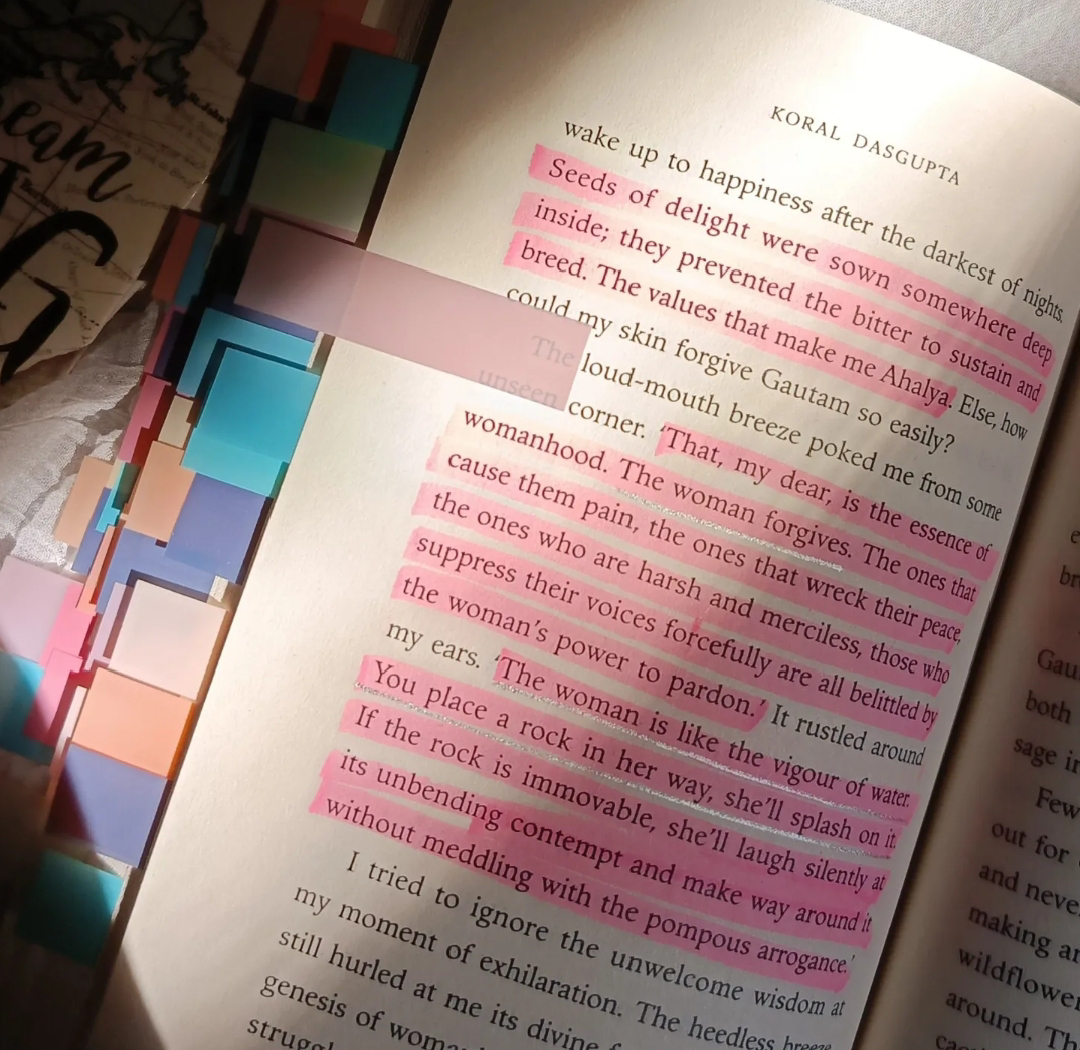 KORAL DASGUPTA
wake up to happiness after the darkest of nights.
Seeds of delight were sown somewhere deep
inside; they prevented the bitter to sustain and
breed. The values that make me Ahalya. Else, how
could my skin forgive Gautam so easily?
The loud-mouth breeze poked me from some
unseen corner. ‘That, my dear, is the essence of
womanhood. The woman forgives. The ones that
cause them pain, the ones that wreck their peace,
the ones who are harsh and merciless, those who
suppress their voices forcefully are all belittled by
the woman’s power to pardon.’ It rustled around
my ears. ‘The woman is like the vigour of water.
You place a rock in her way, she’ll splash on it.
If the rock is immovable, she’ll laugh silently at
its unbending contempt and make way around it
without meddling with the pompous arrogance.’
I tried to ignore the unwelcome wisdom at
my moment of exhilaration. The heedless breeze
still hurled at me its divine
genesis of
Gau
both
sage
Few
out for
and never
making
wildflower
around.